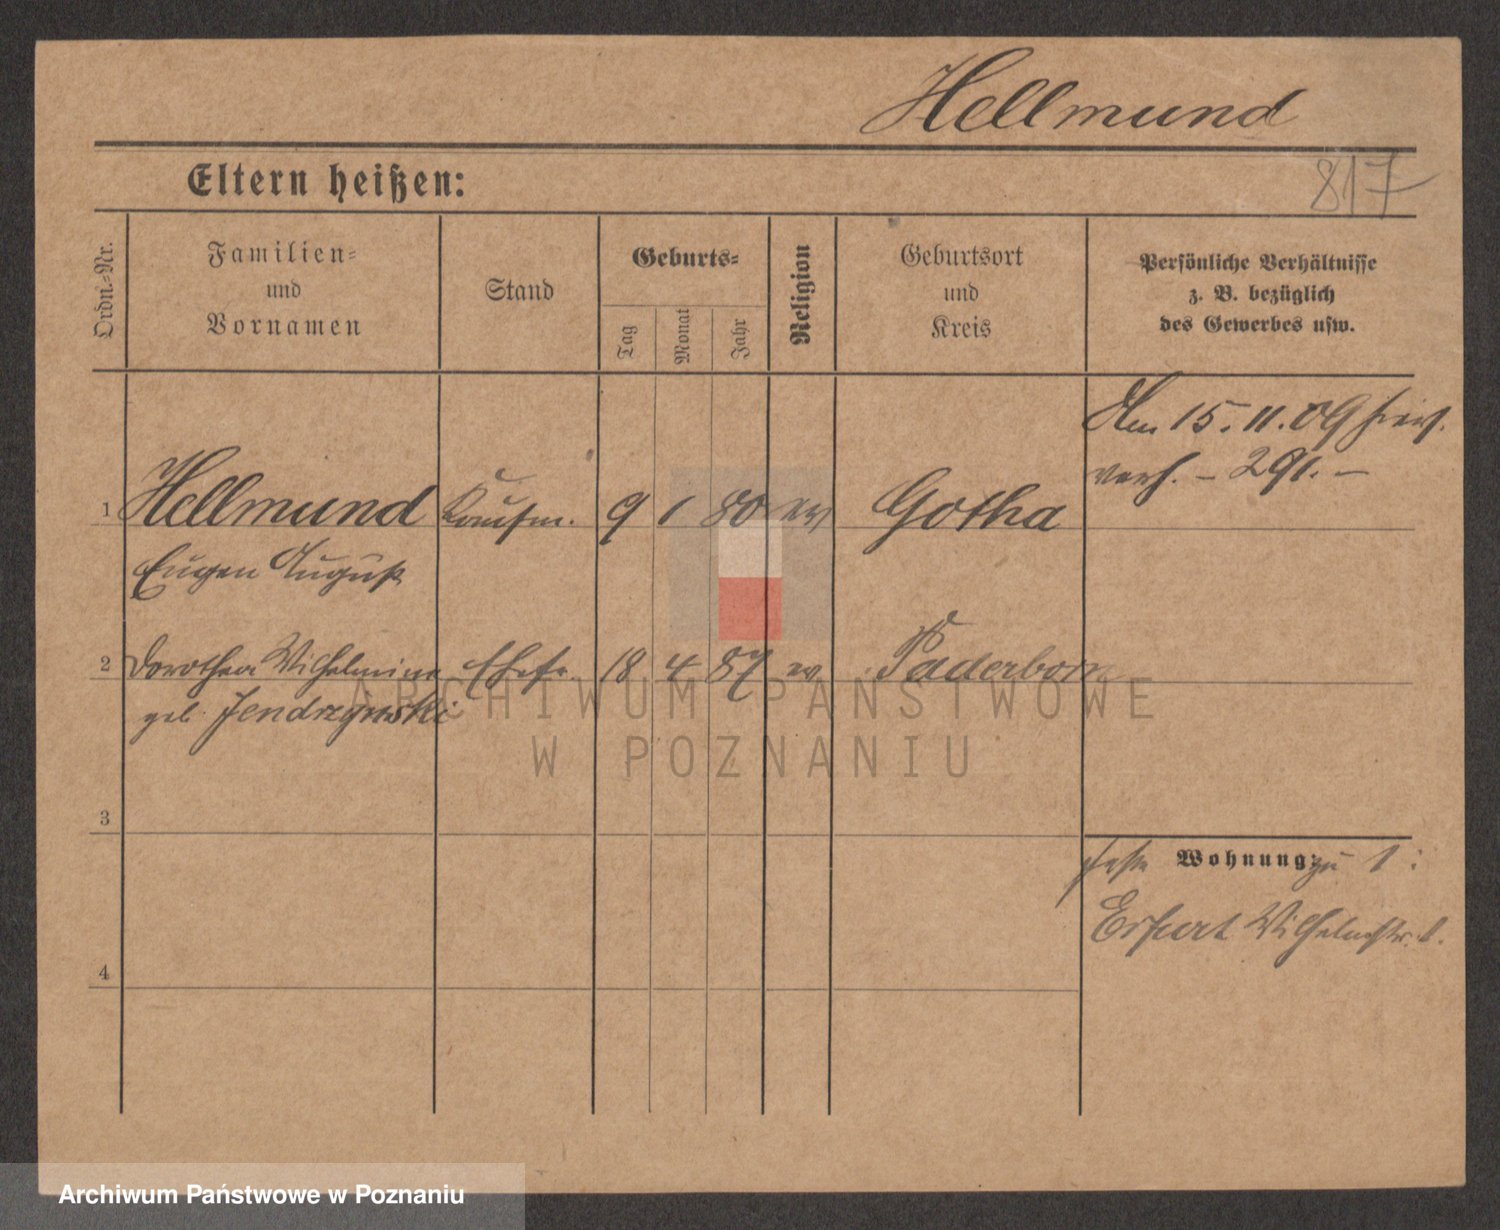 Hellmund
817
Eltern heißen:
Ordn.-Nr.
Familien-
und
Vornamen
Stand
Geburts-
Tag
Monat
Jahr
Religion
Geburtsort
und
Kreis
Persönliche Verhältnisse
z. B. bezüglich
des Gewerbes usw.
Am 15.11.09 hier
verh. - 291. -
1 Hellmund Kaufm. 9 1 80 ev Gotha
Eugen August
2 Dorothea Wilhelmine Ehefr. 18 4 87 ev Paderborn
geb. Jendrzynski
3
Wohnung: zu 1:
Erfurt Wilhelmstr.
4
ARCHIWUM PAŃSTWOWE
W POZNANIU
Archiwum Państwowe w Poznaniu